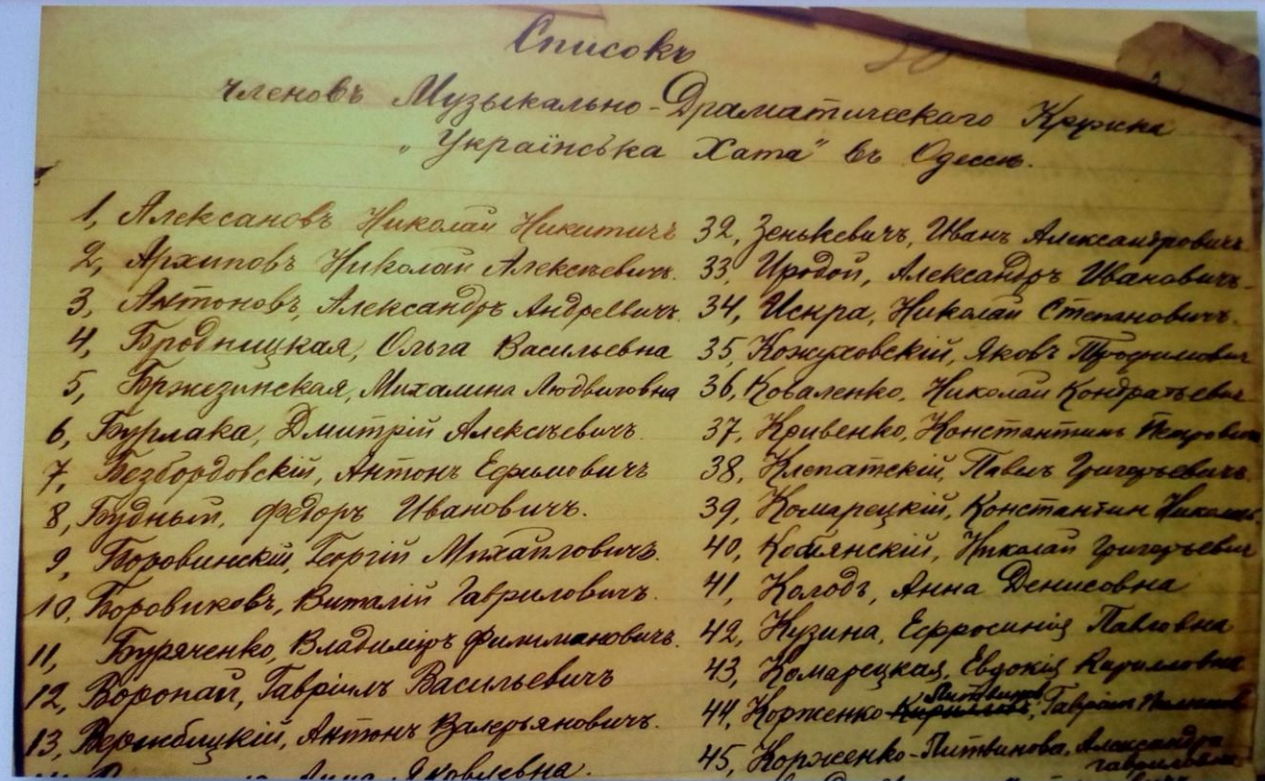 Списокъ
членовъ Музыкально-Драматическаго Кружка
„Українська Хата" въ Одессѣ.
1, Алексановъ Николай Никитичъ
2, Архиповъ Николай Алексѣевичъ.
3, Антоновъ, Александръ Андреевичъ.
4, Бродницкая, Ольга Васильевна
5, Бржезинская, Михалина Людвиговна
6, Бурлака, Дмитрій Алексѣевичъ.
7, Безбордовскій, Антонъ Ефимовичъ
8, Будный, Федоръ Ивановичъ.
9, Боровинскій, Георгій Михайловичъ.
10, Боровиковъ, Виталій Гавриловичъ.
11, Буряченко, Владиміръ Филимановичъ.
12, Воропай, Гавріилъ Васильевичъ
13, Антонъ Валерьяновичъ.
Анна Яковлевна.
32, Зенькевичъ, Иванъ Александровичъ
33, Иродой, Александръ Ивановичъ.
34, Искра, Николай Степановичъ.
35, Кожуховскій, Яковъ Трофимович
36, Коваленко, Николай Кондратьевич
37, Кривенко, Константинъ Петрович
38, Клепатскій, Павелъ Григорьевичъ.
39, Комарецкій, Константин Николаев
40, Кобянскій, Николай Григорьевич
41, Колодъ, Анна Денисовна
42, Кузина, Ефросинія Павловна
43, Комарецкая, Евдокія Кирилловна
44, Корженко Литвинов, Гавріил
45, Корженко-Литвинова, Александра
Гавриловна